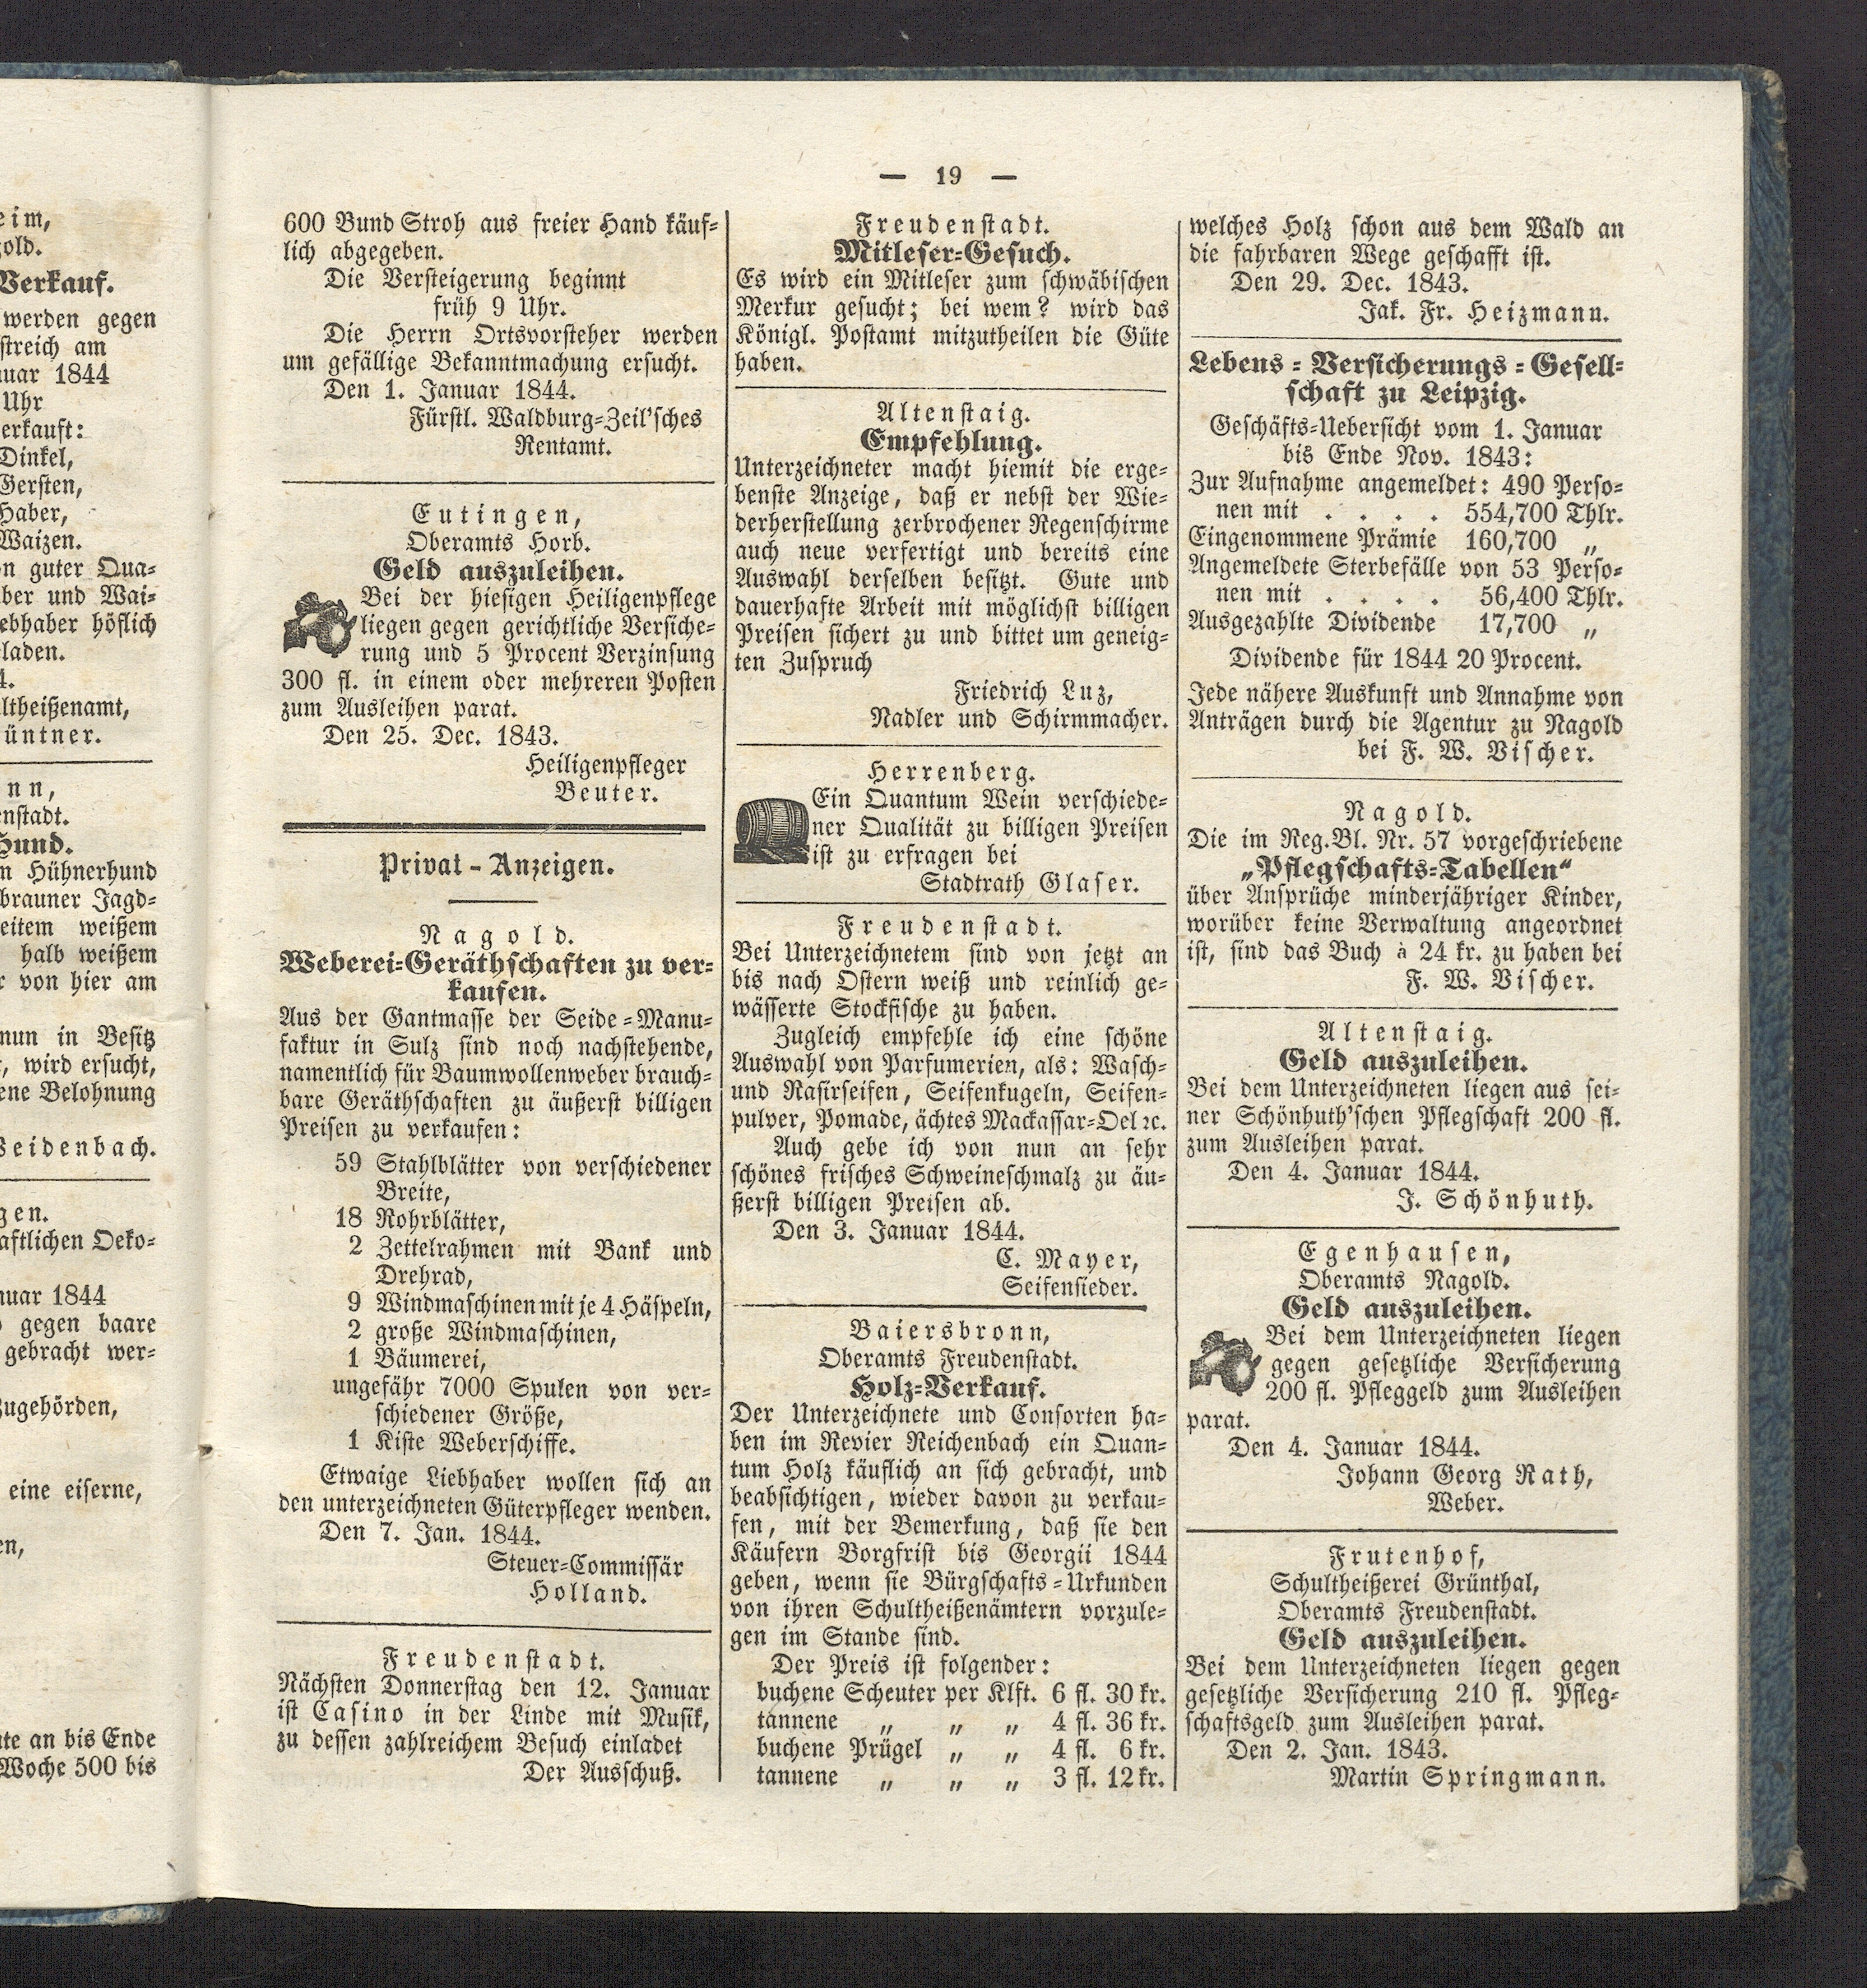 — 19 —
600 Bund Stroh aus freier Hand käuf=
lich abgegeben.
Die Versteigerung beginnt
früh 9 Uhr.
Die Herrn Ortsvorsteher werden
um gefällige Bekanntmachung ersucht.
Den 1. Januar 1844.
Fürstl. Waldburg=Zeil'sches
Rentamt.
Eutingen,
Oberamts Horb.
Geld auszuleihen.
Bei der hiesigen Heiligenpflege
liegen gegen gerichtliche Versiche=
rung und 5 Procent Verzinsung
300 fl. in einem oder mehreren Posten
zum Ausleihen parat.
Den 25. Dec. 1843.
Heiligenpfleger
Beuter.
Privat=Anzeigen.
Nagold.
Weberei=Geräthschaften zu ver=
kaufen.
Aus der Gantmasse der Seide=Manu=
faktur in Sulz sind noch nachstehende,
namentlich für Baumwollenweber brauch=
bare Geräthschaften zu äußerst billigen
Preisen zu verkaufen:
59 Stahlblätter von verschiedener
Breite,
18 Rohrblätter,
2 Zettelrahmen mit Bank und
Drehrad,
9 Windmaschinen mit je 4 Häspeln,
2 große Windmaschinen,
1 Bäumerei,
ungefähr 7000 Spulen von ver=
schiedener Größe,
1 Kiste Weberschiffe.
Etwaige Liebhaber wollen sich an
den unterzeichneten Güterpfleger wenden.
Den 7. Jan. 1844.
Steuer=Commissär
Holland.
Freudenstadt.
Nächsten Donnerstag den 12. Januar
ist Casino in der Linde mit Musik,
zu dessen zahlreichem Besuch einladet
Der Ausschuß.
Freudenstadt.
Mitleser=Gesuch.
Es wird ein Mitleser zum schwäbischen
Merkur gesucht; bei wem? wird das
Königl. Postamt mitzutheilen die Güte
haben.
Altenstaig.
Empfehlung.
Unterzeichneter macht hiemit die erge=
benste Anzeige, daß er nebst der Wie=
derherstellung zerbrochener Regenschirme
auch neue verfertigt und bereits eine
Auswahl derselben besitzt. Gute und
dauerhafte Arbeit mit möglichst billigen
Preisen sichert zu und bittet um geneig=
ten Zuspruch
Friedrich Luz,
Nadler und Schirmmacher.
Herrenberg.
Ein Quantum Wein verschiede=
ner Qualität zu billigen Preisen
ist zu erfragen bei
Stadtrath Glaser.
Freudenstadt.
Bei Unterzeichnetem sind von jetzt an
bis nach Ostern weiß und reinlich ge=
wässerte Stockfische zu haben.
Zugleich empfehle ich eine schöne
Auswahl von Parfumerien, als: Wasch=
und Rasirseifen, Seifenkugeln, Seifen=
pulver, Pomade, ächtes Mackassar=Oel ꝛc.
Auch gebe ich von nun an sehr
schönes frisches Schweineschmalz zu äu=
ßerst billigen Preisen ab.
Den 3. Januar 1844.
C. Mayer,
Seifensieder.
Baiersbronn,
Oberamts Freudenstadt.
Holz=Verkauf.
Der Unterzeichnete und Consorten ha=
ben im Revier Reichenbach ein Quan=
tum Holz käuflich an sich gebracht, und
beabsichtigen, wieder davon zu verkau=
fen, mit der Bemerkung, daß sie den
Käufern Borgfrist bis Georgii 1844
geben, wenn sie Bürgschafts=Urkunden
von ihren Schultheißenämtern vorzule=
gen im Stande sind.
Der Preis ist folgender:
buchene Scheuter per Klft. 6 fl. 30 kr.
tannene „ „ „ 4 fl. 36 kr.
buchene Prügel „ „ 4 fl. 6 kr.
tannene „ „ „ 3 fl. 12 kr.
welches Holz schon aus dem Wald an
die fahrbaren Wege geschafft ist.
Den 29. Dec. 1843.
Jak. Fr. Heizmann.
Lebens=Versicherungs=Gesell=
schaft zu Leipzig.
Geschäfts=Uebersicht vom 1. Januar
bis Ende Nov. 1843:
Zur Aufnahme angemeldet: 490 Perso=
nen mit . . . . 554,700 Thlr.
Eingenommene Prämie 160,700 „
Angemeldete Sterbefälle von 53 Perso=
nen mit . . . . 56,400 Thlr.
Ausgezahlte Dividende 17,700 „
Dividende für 1844 20 Procent.
Jede nähere Auskunft und Annahme von
Anträgen durch die Agentur zu Nagold
bei F. W. Vischer.
Nagold.
Die im Reg.Bl. Nr. 57 vorgeschriebene
„Pflegschafts=Tabellen“
über Ansprüche minderjähriger Kinder,
worüber keine Verwaltung angeordnet
ist, sind das Buch à 24 kr. zu haben bei
F. W. Vischer.
Altenstaig.
Geld auszuleihen.
Bei dem Unterzeichneten liegen aus sei=
ner Schönhuth'schen Pflegschaft 200 fl.
zum Ausleihen parat.
Den 4. Januar 1844.
J. Schönhuth.
Egenhausen,
Oberamts Nagold.
Geld auszuleihen.
Bei dem Unterzeichneten liegen
gegen gesetzliche Versicherung
200 fl. Pfleggeld zum Ausleihen
parat.
Den 4. Januar 1844.
Johann Georg Rath,
Weber.
Frutenhof,
Schultheißerei Grünthal,
Oberamts Freudenstadt.
Geld auszuleihen.
Bei dem Unterzeichneten liegen gegen
gesetzliche Versicherung 210 fl. Pfleg=
schaftsgeld zum Ausleihen parat.
Den 2. Jan. 1843.
Martin Springmann.